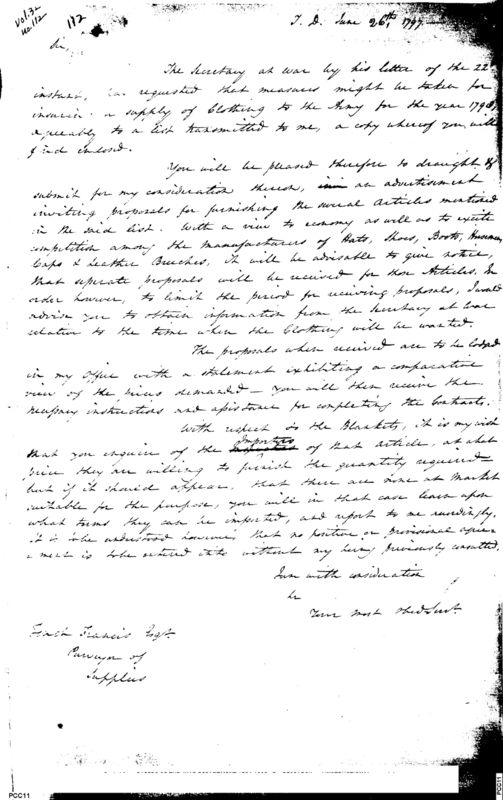 Vol. 32
No. 112
112
T. D. June 26th, 1797
Sir,
The Secretary at war by his letter of the 22d
instant, has requested that measures might be taken for
insuring a supply of Clothing to the Army for the year 1798,
agreeably to a list transmitted to me, a copy whereof you will
find enclosed.
You will be pleased therefore to draught &
submit for my consideration thereon, an advertisement
inviting proposals for furnishing the several Articles mentioned
in the said list. With a view to economy as well as to excite
competition among the Manufacturers of Hats, Shoes, Boots, Horsemen,
Caps & Leather Breeches, it will be advisable to give notice,
that separate proposals will be received for those Articles. In
order however, to limit the period for receiving proposals, I would
advise you to obtain information from the Secretary at war
relative to the time when the Clothing will be wanted.
The proposals when received are to be lodged
in my Office with a statement exhibiting a comparative
view of the prices demanded — You will then receive the
necessary instructions and assistance for completing the Contracts.
With respect to the Blankets, it is my wish
that you enquire of the Importers of that article, at what
price they are willing to furnish the quantity required—
but if it should appear, that there are none at Market
suitable for the purpose, you will in that case learn upon
what terms they can be imported, and report to me accordingly.
it is to be understood however, that no positive or provisional agree
ment is to be entered into without my being previously consulted.
I am with consideration
Your most Obed Servt.
Tench Francis Esqr.
Purveyor of
Supplies
PCC11
PCC11